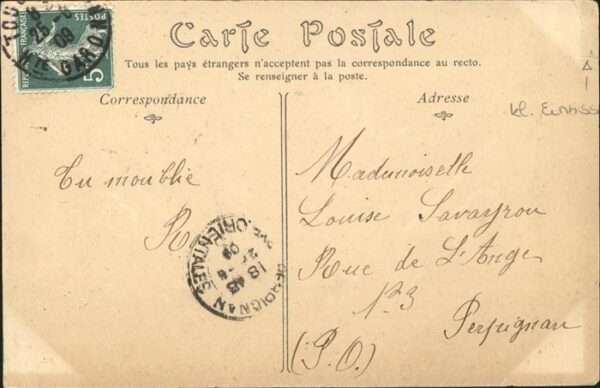 POSTES
5
25
09
Hte GARONNE
Carte Postale
Tous les pays étrangers n'acceptent pas la correspondance au recto.
Se renseigner à la poste.
Correspondance
Adresse
Tu moublie
R
PERPIGNAN
18 45
09
PYR. ORIENTALES
Mademoiselle
Louise Savayrou
Rue de L'Ange
No 3
Perpignan
(P.O.)